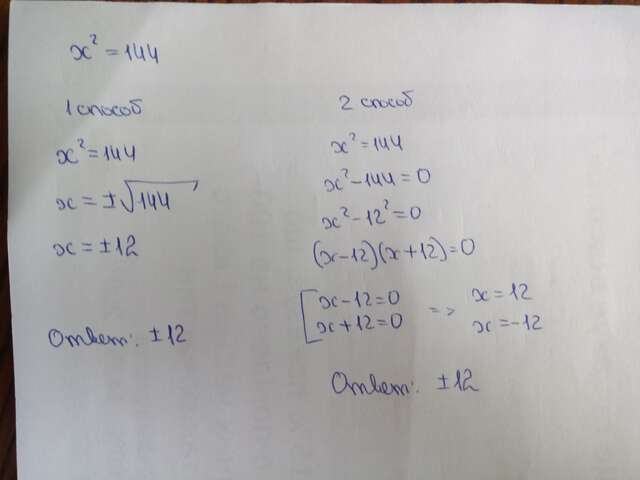 x² = 144
1 способ
x² = 144
x = ±√144
x = ±12
Ответ: ±12
2 способ
x² = 144
x² - 144 = 0
x² - 12² = 0
(x-12)(x+12) = 0
[ x-12=0 => x = 12
x+12=0 x = -12
Ответ: ±12